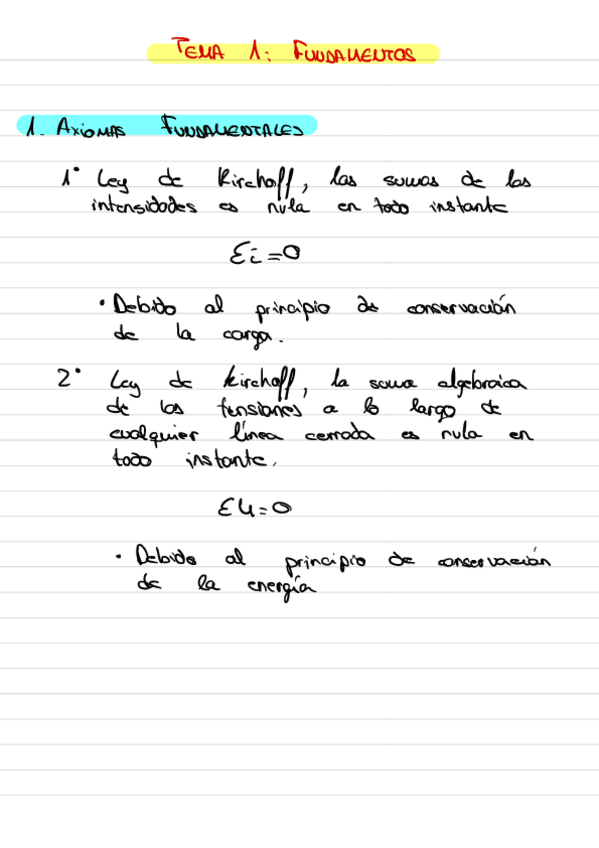 TEMA 1: FUNDAMENTOS
1. AXIOMAS FUNDAMENTALES
1° Ley de Kirchoff, las sumas de las
intensidades es nula en todo instante
Σi=0
• Debido al principio de conservación
de la carga.
2° Ley de Kirchoff, la suma algebraica
de las tensiones a lo largo de
cualquier línea cerrada es nula en
todo instante.
Σu=0
• Debido al principio de conservación
de la energía